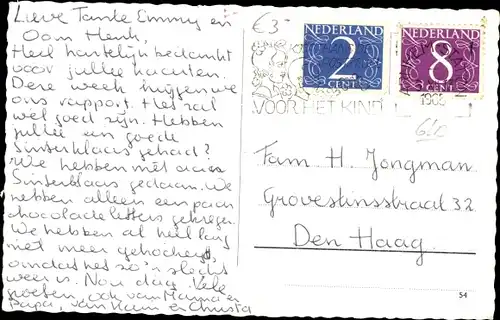 Lieve Tante Emmy en
Oom Henk,
Heel hartelijk bedankt
voor jullie kaarten.
Deze week krijgen we
ons rapport. Het zal
wel goed zijn. Hebben
jullie een goede
Sinterklaas gehad?
We hebben niet aan
Sinterklaas gedaan. We
hebben alleen een paar
chocoladeletters gekregen.
We hebben al heel lang
niet meer gehockeyt,
omdat het zo'n slecht
weer is. Nou dag. Vele
groeten ook van Mama en
Papa, van en Christa
€3-
NEDERLAND
2
CENT
NEDERLAND
8
CENT
VOOR HET KIND
1965
Fam H. Jongman
Grovestinsstraat 32
Den Haag.
54